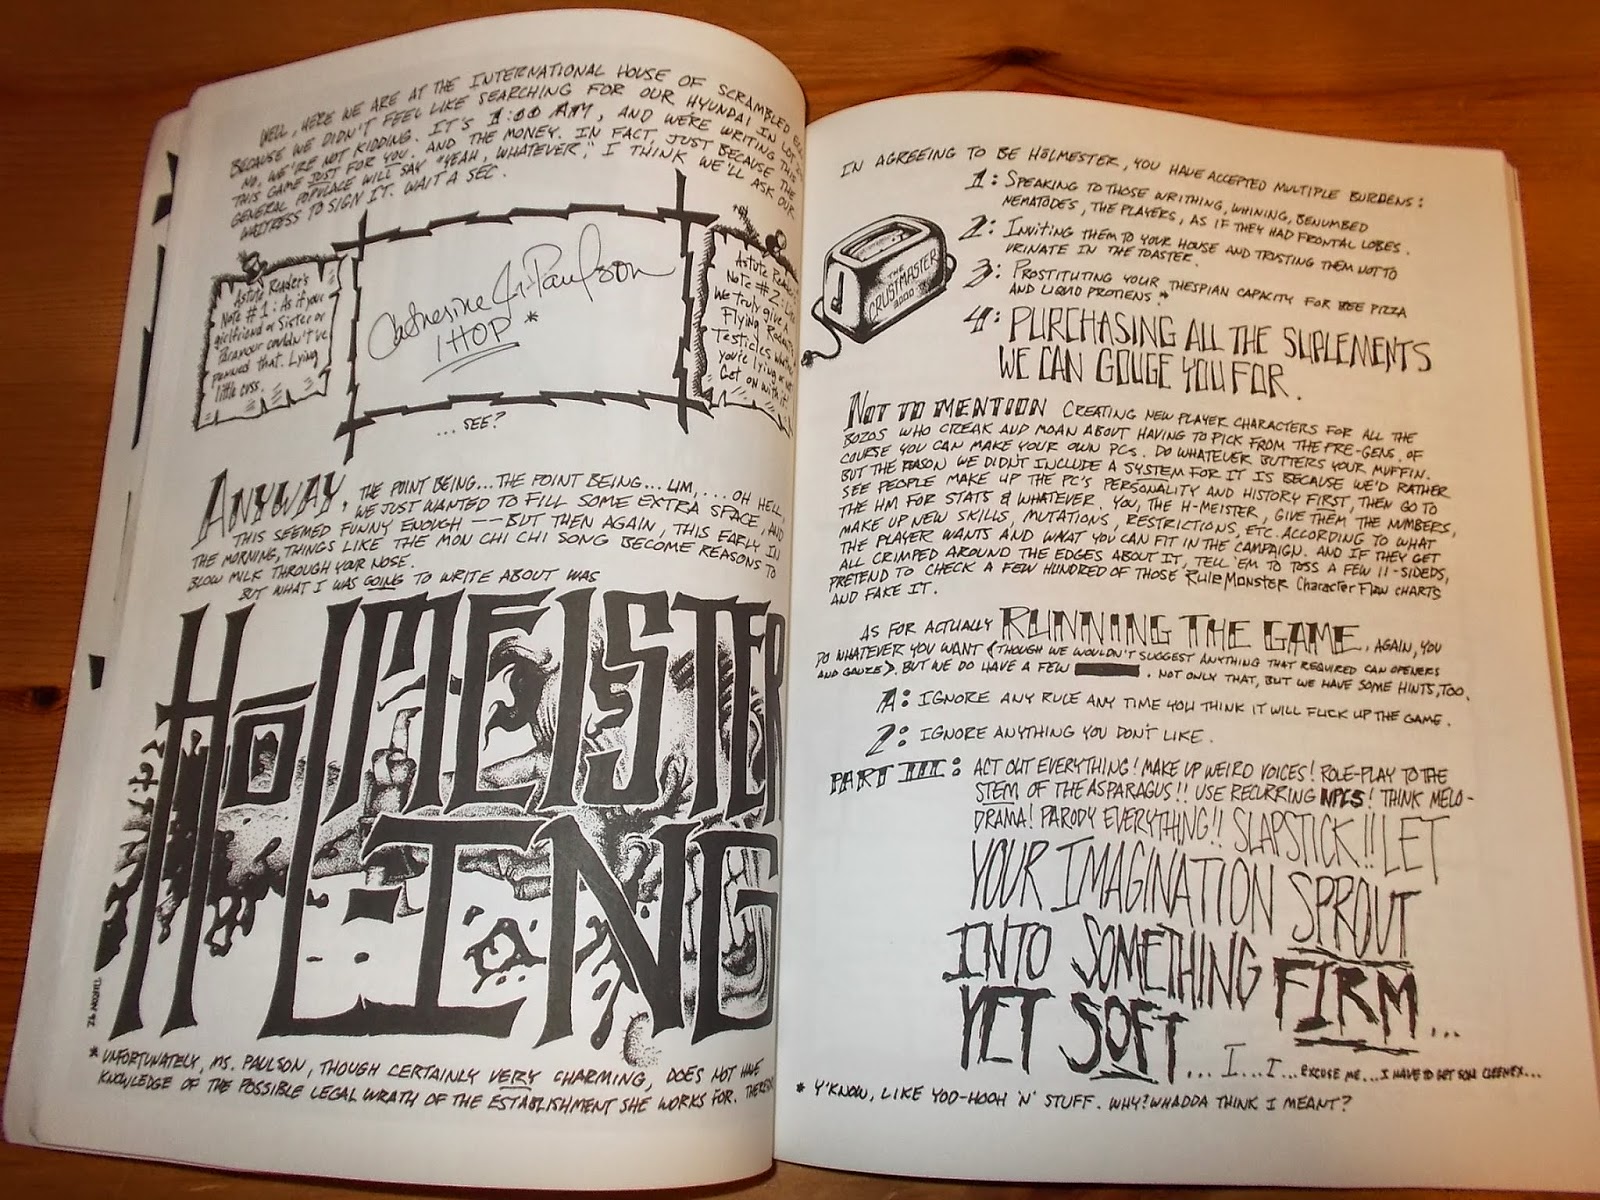 WELL, HERE WE ARE AT THE INTERNATIONAL HOUSE OF SCRAMBLED
BECAUSE WE DIDN'T FEEL LIKE SEARCHING FOR OUR HYUNDAI IN LOT
NO, WE'RE NOT KIDDING. IT'S 1:00 AM, AND WE'RE WRITING THIS
THIS GAME JUST FOR YOU. AND THE MONEY. IN FACT, JUST BECAUSE THE
GENERAL POPULACE WILL SAY "YEAH, WHATEVER," I THINK WE'LL ASK OUR
WAITRESS TO SIGN IT. WAIT A SEC.
Astute Reader's
Note #1: As if your
girlfriend or Sister or
Paramour couldn't've
penned that. Lying
little cuss.
Catherine Jr-Paulson
IHOP *
Astute
Note #2:
We truly give a
Flying
Testicles
you're lying or
Get on with it!
...SEE?
ANYWAY, THE POINT BEING...THE POINT BEING... UM,... OH HELL.
WE JUST WANTED TO FILL SOME EXTRA SPACE, AND
THIS SEEMED FUNNY ENOUGH -- BUT THEN AGAIN, THIS EARLY IN
THE MORNING, THINGS LIKE THE MON CHI CHI SONG BECOME REASONS TO
BLOW MILK THROUGH YOUR NOSE.
BUT WHAT I WAS GOING TO WRITE ABOUT WAS
HōLMEISTER
LING
* UNFORTUNATELY, MS. PAULSON, THOUGH CERTAINLY VERY CHARMING, DOES NOT HAVE
KNOWLEDGE OF THE POSSIBLE LEGAL WRATH OF THE ESTABLISHMENT SHE WORKS FOR.
IN AGREEING TO BE HōLMESTER, YOU HAVE ACCEPTED MULTIPLE BURDENS:
1: SPEAKING TO THOSE WRITHING, WHINING, BENUMBED
NEMATODES, THE PLAYERS, AS IF THEY HAD FRONTAL LOBES.
2: INVITING THEM TO YOUR HOUSE AND TRUSTING THEM NOT TO
URINATE IN THE TOASTER.
THE
CRUSTMASTER
3000
3: PROSTITUTING YOUR THESPIAN CAPACITY FOR FREE PIZZA
AND LIQUID PROTIENS.*
4: PURCHASING ALL THE SUPLEMENTS
WE CAN GOUGE YOU FOR.
NOT TO MENTION CREATING NEW PLAYER CHARACTERS FOR ALL THE
BOZOS WHO CREAK AND MOAN ABOUT HAVING TO PICK FROM THE PRE-GENS. OF
COURSE YOU CAN MAKE YOUR OWN PCs. DO WHATEVER BUTTERS YOUR MUFFIN.
BUT THE REASON WE DIDN'T INCLUDE A SYSTEM FOR IT IS BECAUSE WE'D RATHER
SEE PEOPLE MAKE UP THE PC'S PERSONALITY AND HISTORY FIRST, THEN GO TO
THE HM FOR STATS & WHATEVER. YOU, THE H-MEISTER, GIVE THEM THE NUMBERS,
MAKE UP NEW SKILLS, MUTATIONS, RESTRICTIONS, ETC. ACCORDING TO WHAT
THE PLAYER WANTS AND WHAT YOU CAN FIT IN THE CAMPAIGN. AND IF THEY GET
ALL CRIMPED AROUND THE EDGES ABOUT IT, TELL 'EM TO TOSS A FEW 11-SIDEDS,
PRETEND TO CHECK A FEW HUNDRED OF THOSE RuleMonster Character Flaw CHARTS
AND FAKE IT.
AS FOR ACTUALLY RUNNING THE GAME, AGAIN, YOU
DO WHATEVER YOU WANT (THOUGH WE WOULDN'T SUGGEST ANYTHING THAT REQUIRED CAN OPENERS
AND GAUZE). BUT WE DO HAVE A FEW . NOT ONLY THAT, BUT WE HAVE SOME HINTS, TOO.
A: IGNORE ANY RULE ANY TIME YOU THINK IT WILL FUCK UP THE GAME.
2: IGNORE ANYTHING YOU DON'T LIKE.
PART III: ACT OUT EVERYTHING! MAKE UP WEIRD VOICES! ROLE-PLAY TO THE
STEM OF THE ASPARAGUS!! USE RECURRING NPCS! THINK MELO-
DRAMA! PARODY EVERYTHING!! SLAPSTICK!! LET
YOUR IMAGINATION SPROUT
INTO SOMETHING FIRM...
YET SOFT...I...I...EXCUSE ME...I HAVE TO GET SOM CLEENEX...
* Y'KNOW, LIKE YOO-HOOH 'N' STUFF. WHY? WHADDA THINK I MEANT?